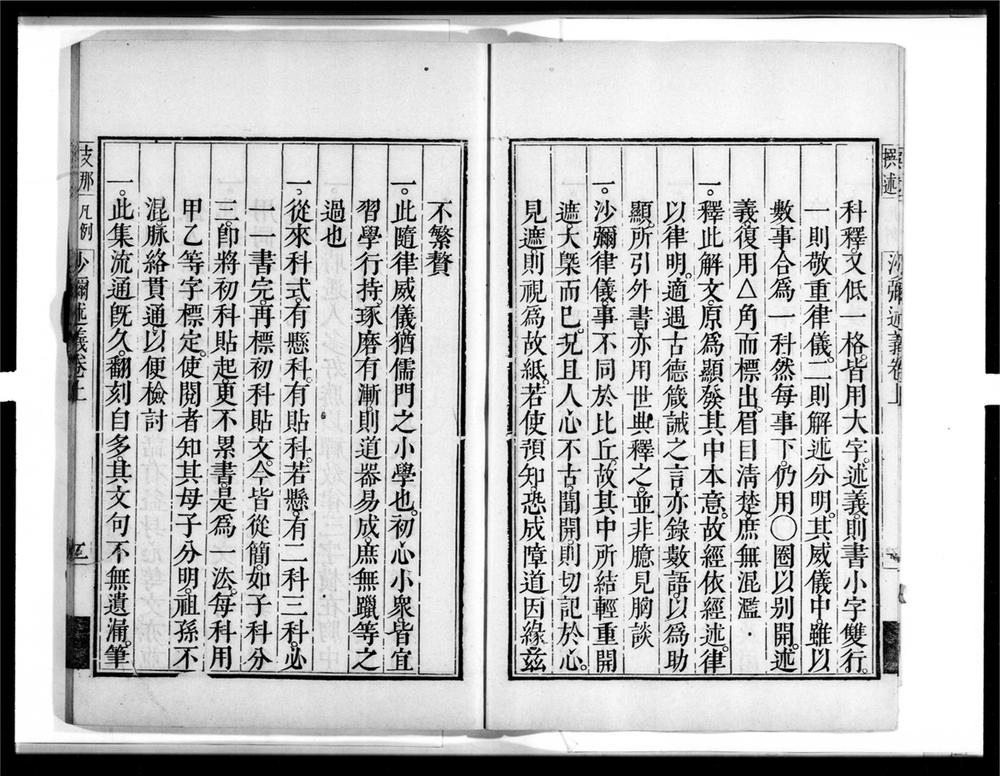 科釋又低一格。皆用大字。述義則書小字雙行。
一則敬重律儀。二則解述分明。其威儀中。雖以
數事合爲一科。然每事下。仍用〇圈以别開。述
義復用△角而標出。眉目淸楚。庶無混濫。
一。釋此解文。原爲顯發其中本意。故經依經述。律
以律明。適遇古德箴誡之言。亦錄數語。以爲助
顯。所引外書。亦用世典釋之。並非臆見胸談
一。沙彌律儀。事不同於比丘。故其中所結輕重開
遮大槩而已。況且人心不古。聞開則切記於心。
見遮則視爲故紙。若使預知。恐成障道因緣。兹
不繁贅
一。此隨律威儀。猶儒門之小學也。初心小衆。皆宜
習學行持。琢磨有漸。則道器易成。庶無躐等之
過也
一。從來科式。有懸科。有貼科。若懸。有二科三科。必
一一書完。再標初科貼文。今皆從簡。如子科分
三。卽將初科貼起。更不累書。是爲一法。每科用
甲乙等字標定。使閱者知其母子分明。祖孫不
混。脉絡貫通。以便檢討
一。此集流通旣久。翻刻自多。其文句不無遺漏。筆
撰述
沙彌述義卷上
一
支那
凡例
沙彌述義卷上